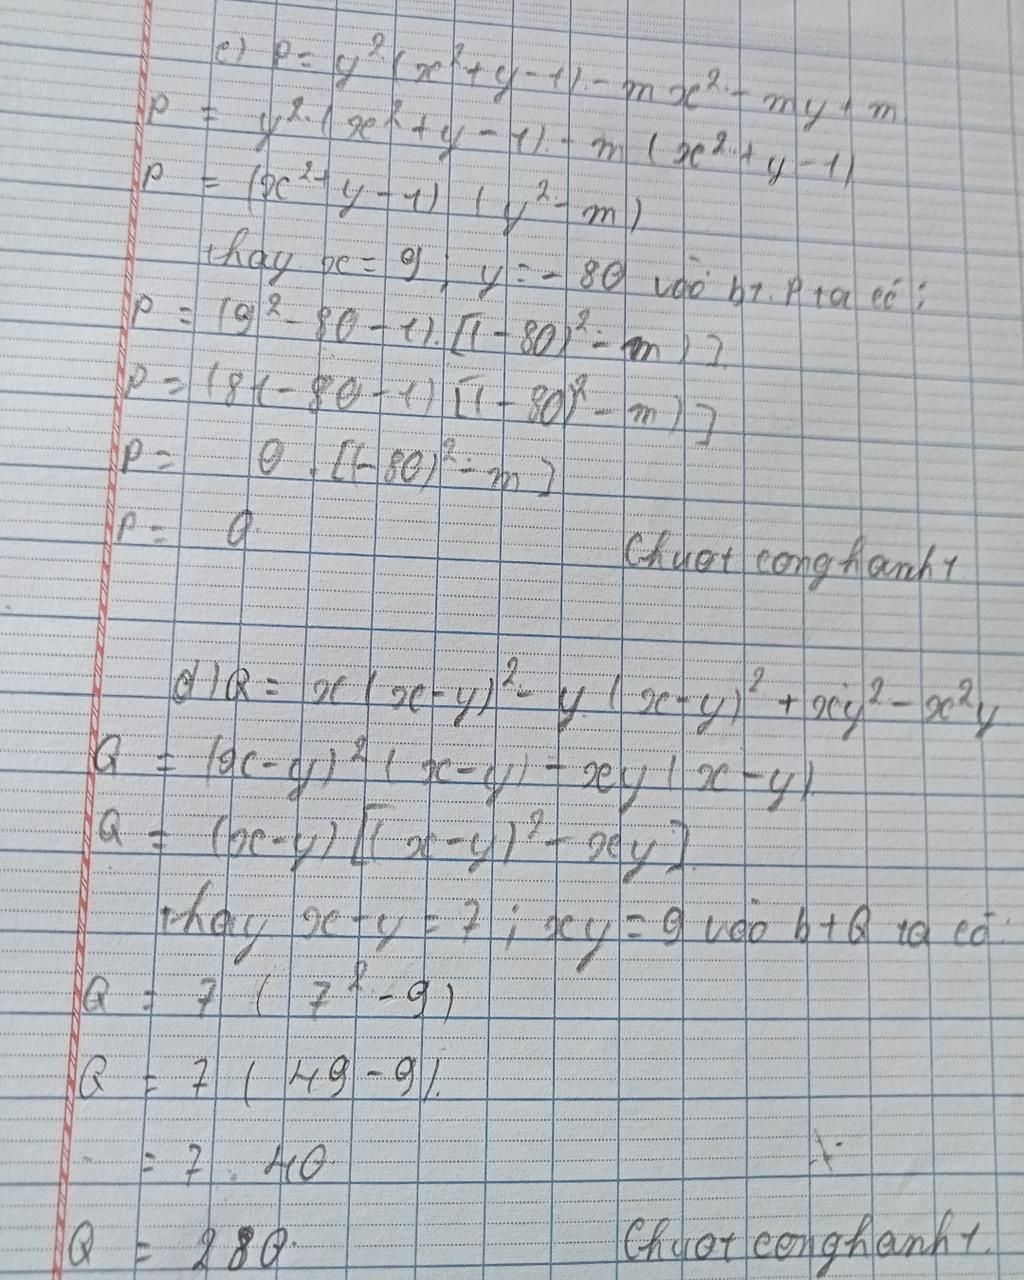 c) P = y². (x² + y - 1) - mx² - my + m
P = y². (x² + y - 1) - m (x² + y - 1)
P = (x² + y - 1) (y² - m)
thay x = 9; y = -80 vào bt P ta có:
P = (9² - 80 - 1). [(-80)² - m)]
P = (81 - 80 - 1) [(-80)² - m)]
P = 0. [(-80)² - m]
P = 0
Chuot conghanht
d) Q = x (x - y)² - y (x - y)² + xy² - x²y
Q = (x - y)² (x - y) - xy (x - y)
Q = (x - y) [(x - y)² - xy]
thay x - y = 7; xy = 9 vào bt Q ta có:
Q = 7 (7² - 9)
Q = 7 (49 - 9).
= 7. 40
Q = 280.
Chuot conghanht.